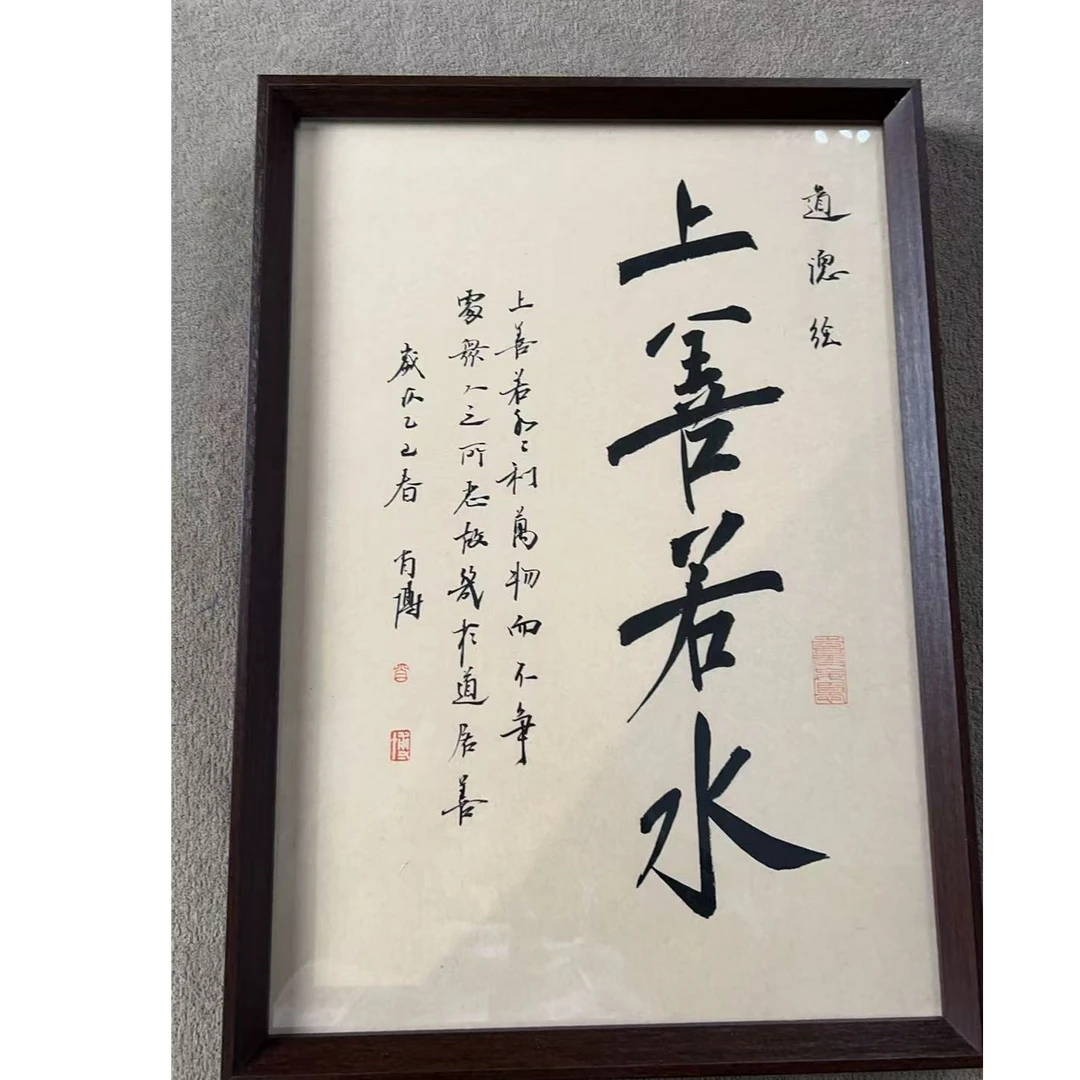 道德经
上善若水
上善若水〻利萬物而不爭
處眾人之所惡故幾於道居善
歲次乙巳春 肖博
肖
博